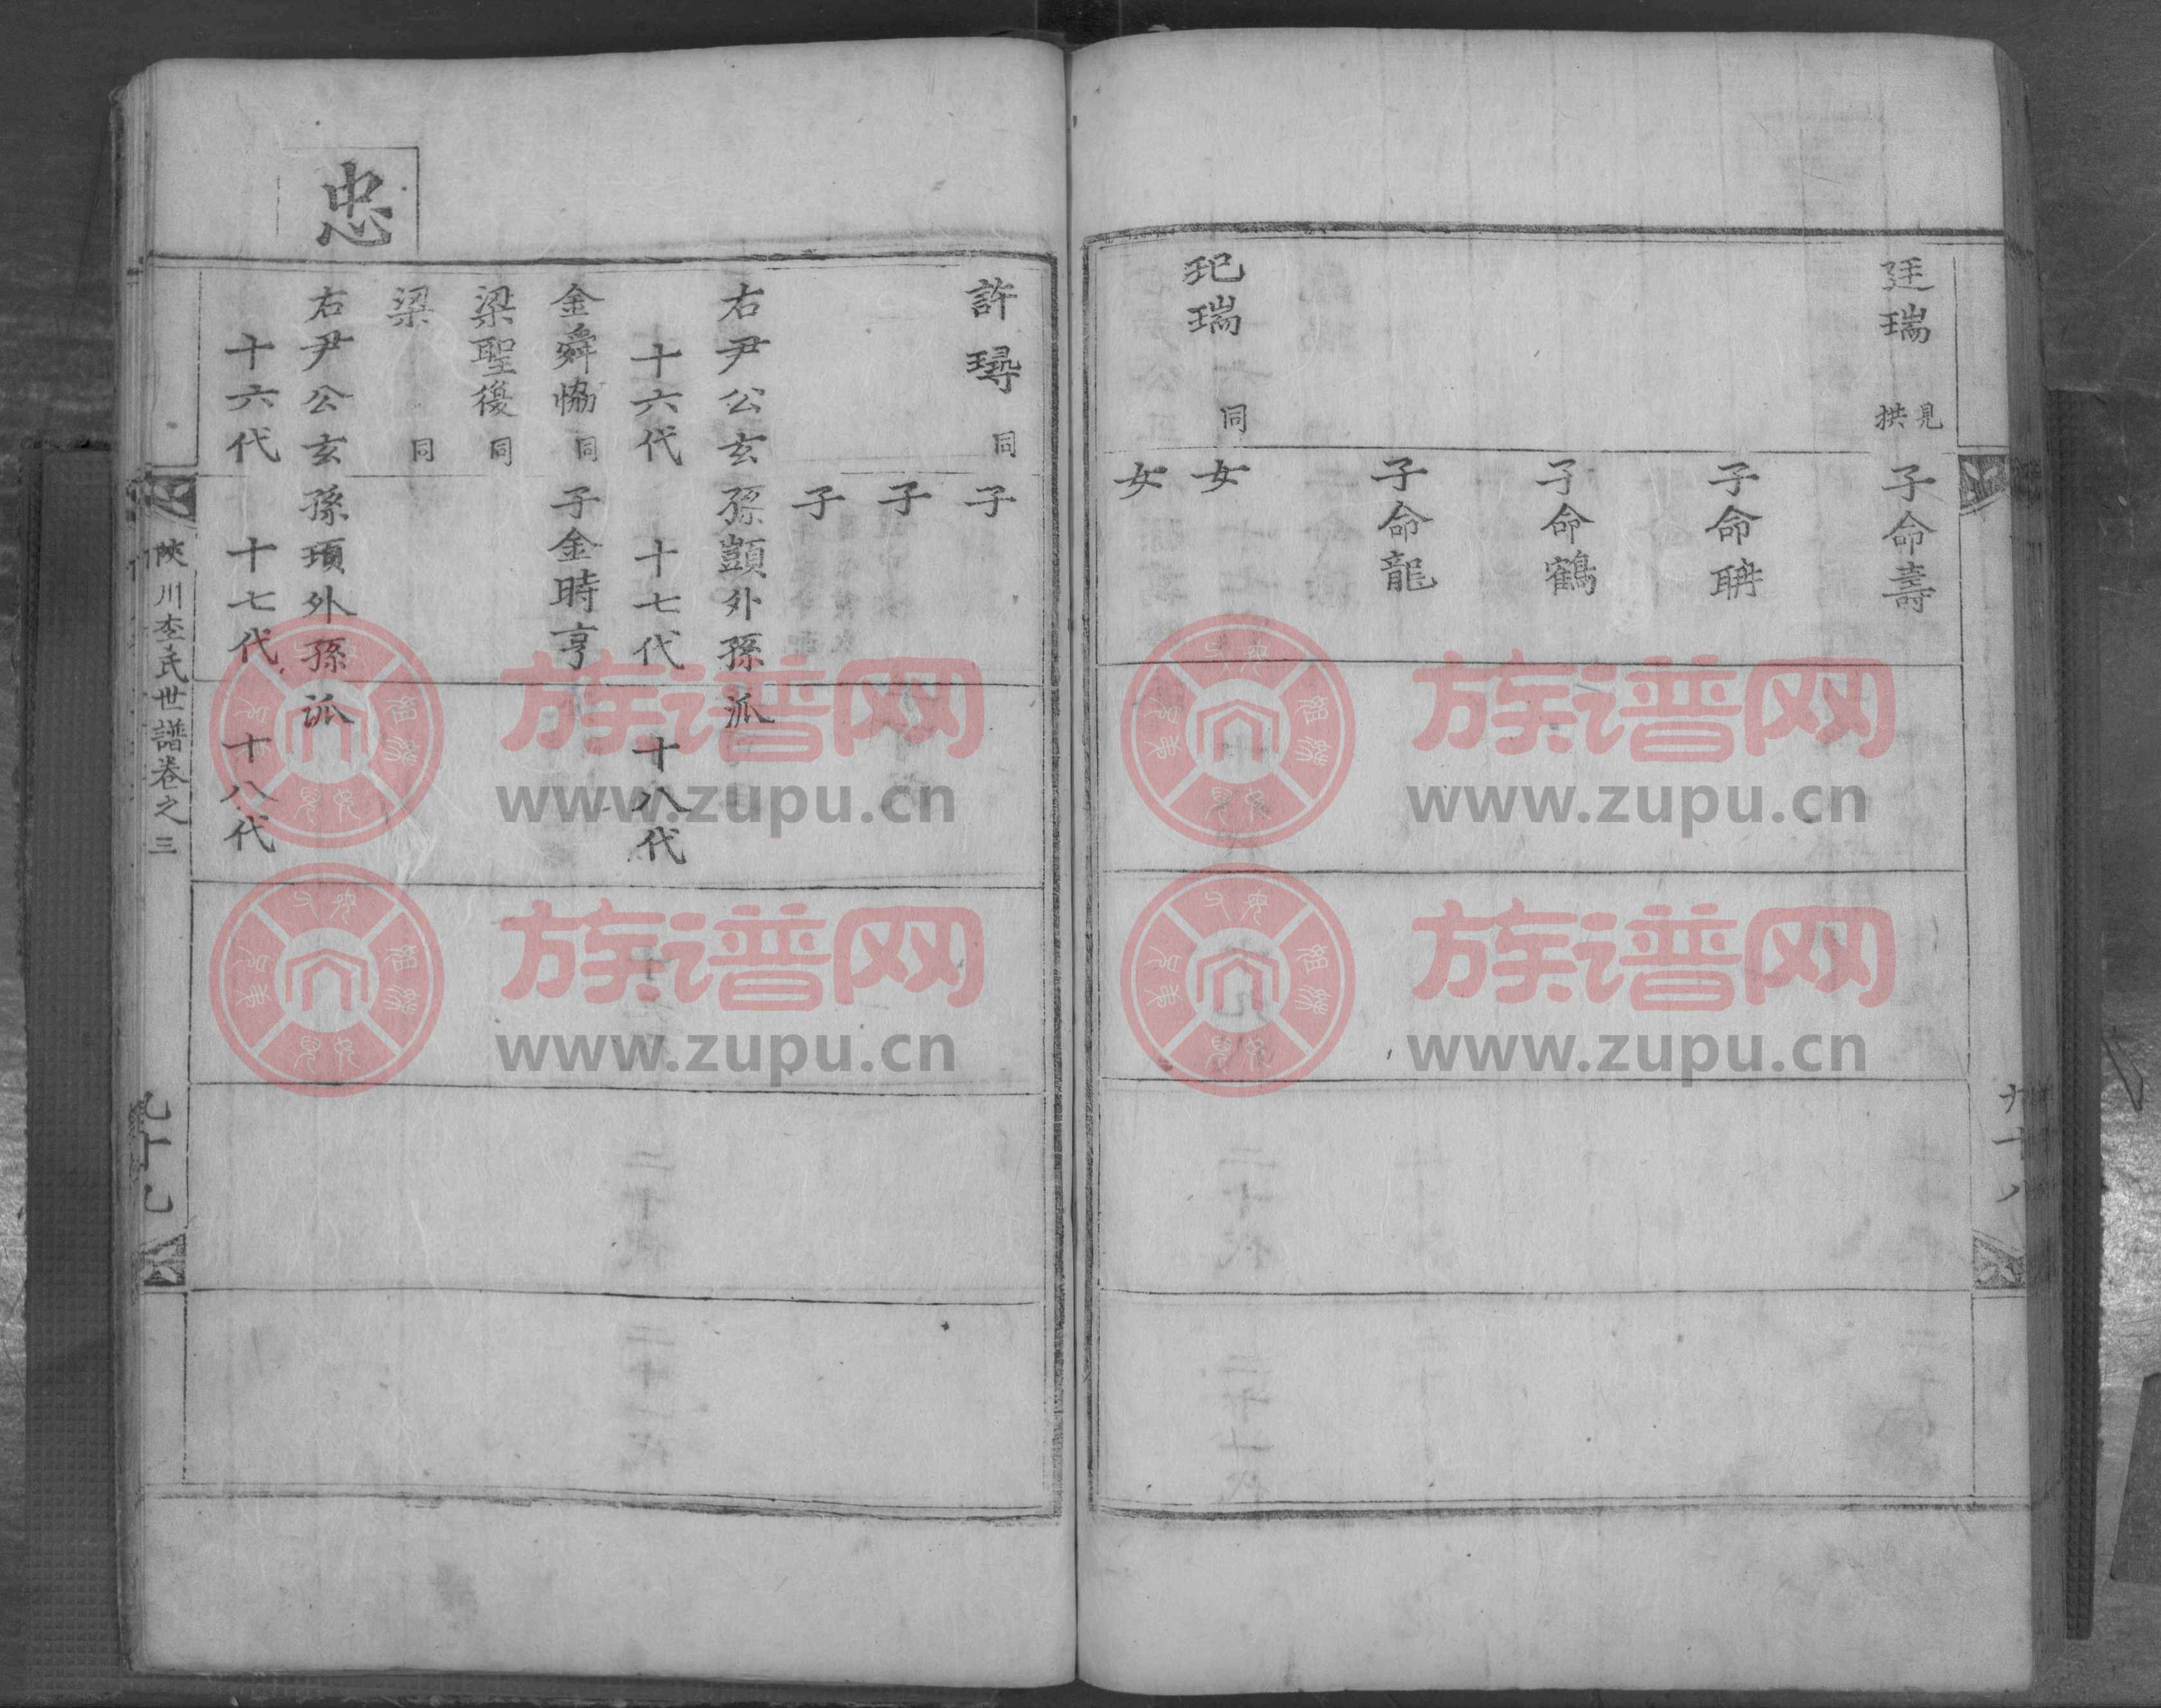 廷瑞 見拱 子命壽
子命聃
子命鶴
子命龍
玘瑞 同 女
女
九十八
許璕 同 子
子
子
右尹公玄孫顗外孫派
十六代 十七代 十八代
金舜協 同 子金時亨
梁聖後 同
梁 同
忠
右尹公玄孫頊外孫派
十六代 十七代 十八代
陜川李氏世譜卷之三
九十九
族谱网
www.zupu.cn
族谱网
www.zupu.cn
族谱网
www.zupu.cn
族谱网
www.zupu.cn